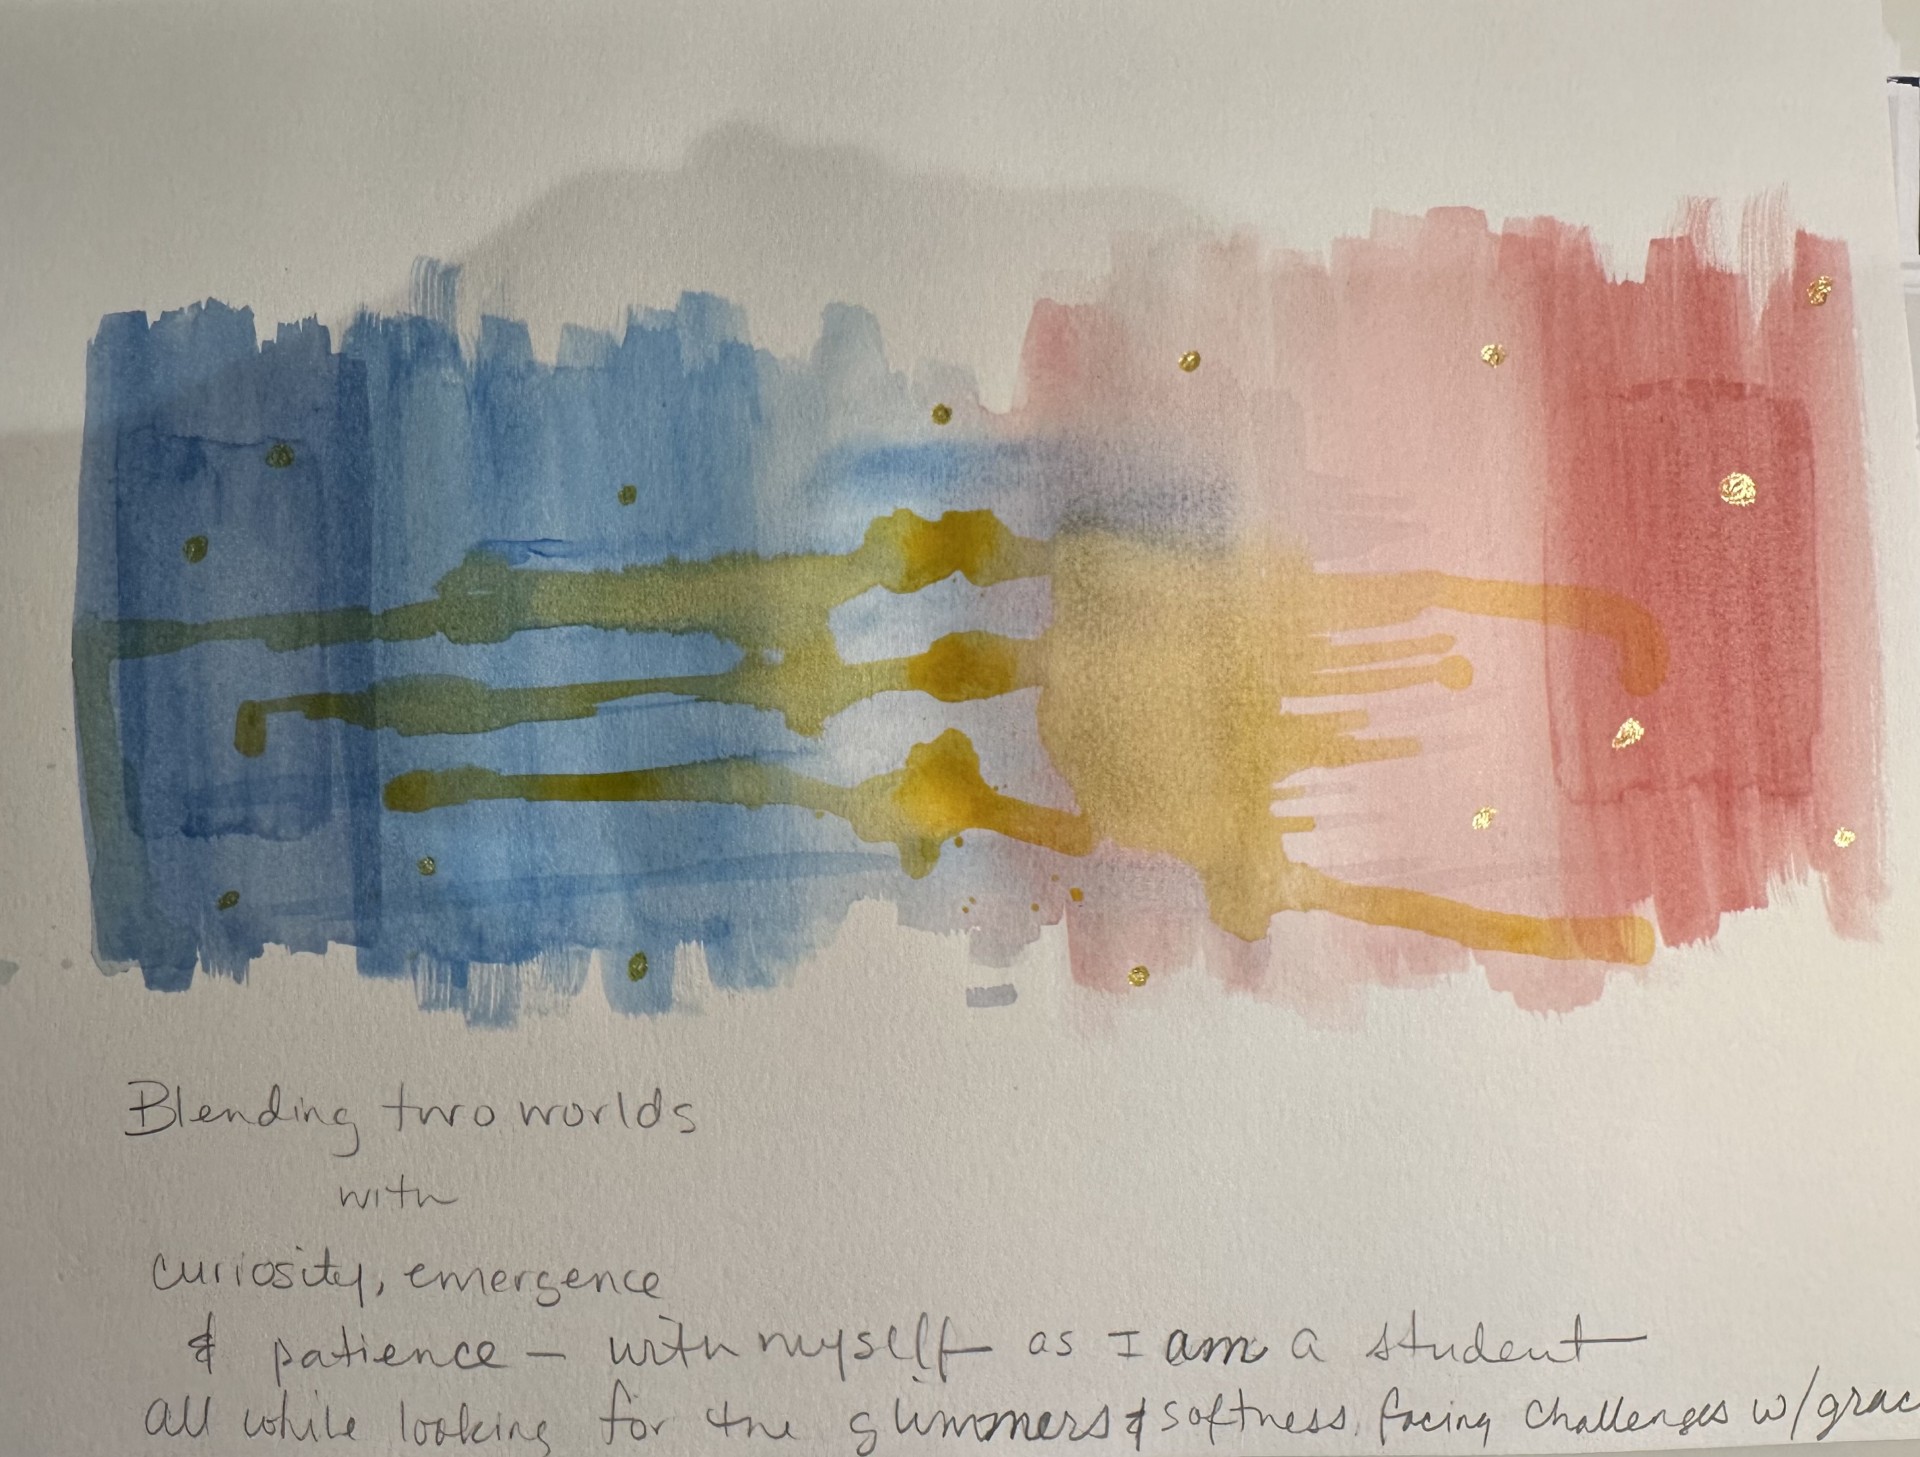 Blending two worlds
with
curiosity, emergence
& patience – with myself as I am a student
all while looking for the glimmers & softness, facing challenges w/grac